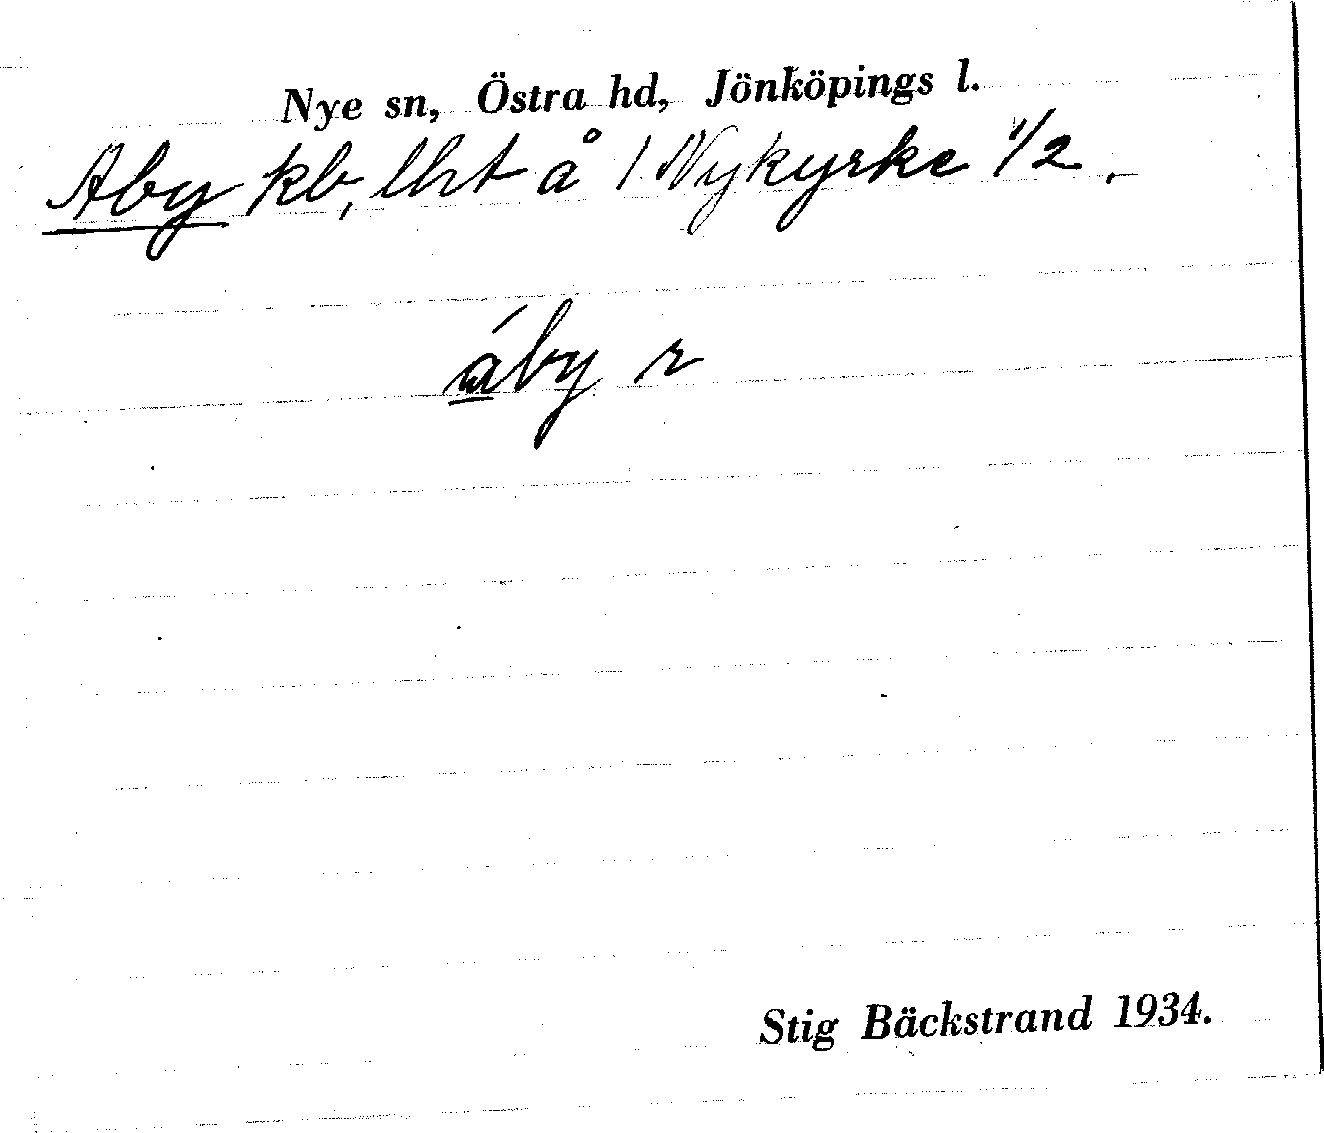 Nye sn, Östra hd, Jönköpings l.
Åby kb, lht å 1 Nykyrke 1/2.
áby r
Stig Bäckstrand 1934.